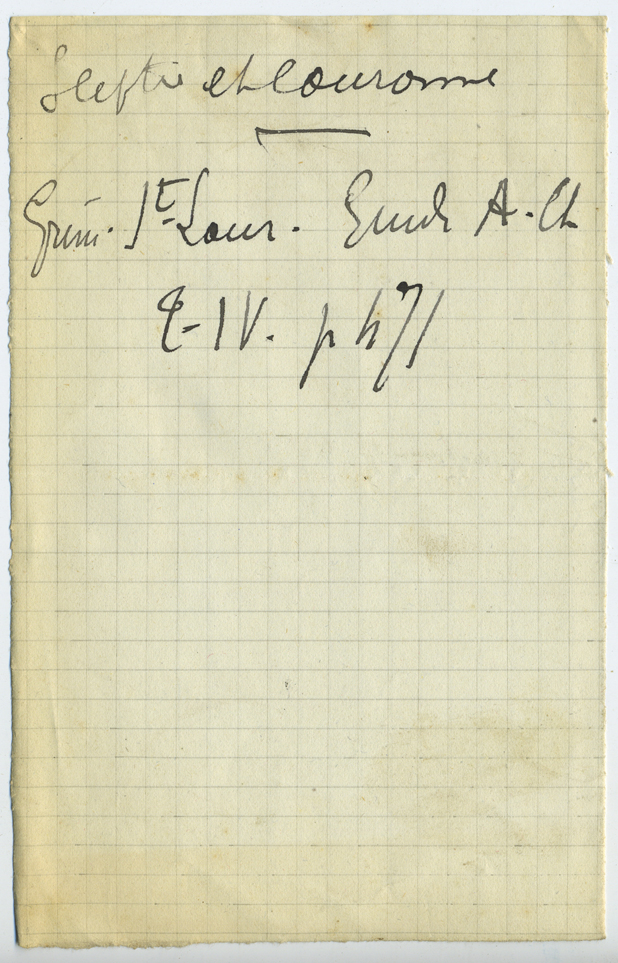 Sceptre et Couronne
Grim. St Laur. Guide A. Ch
T. IV. p 471